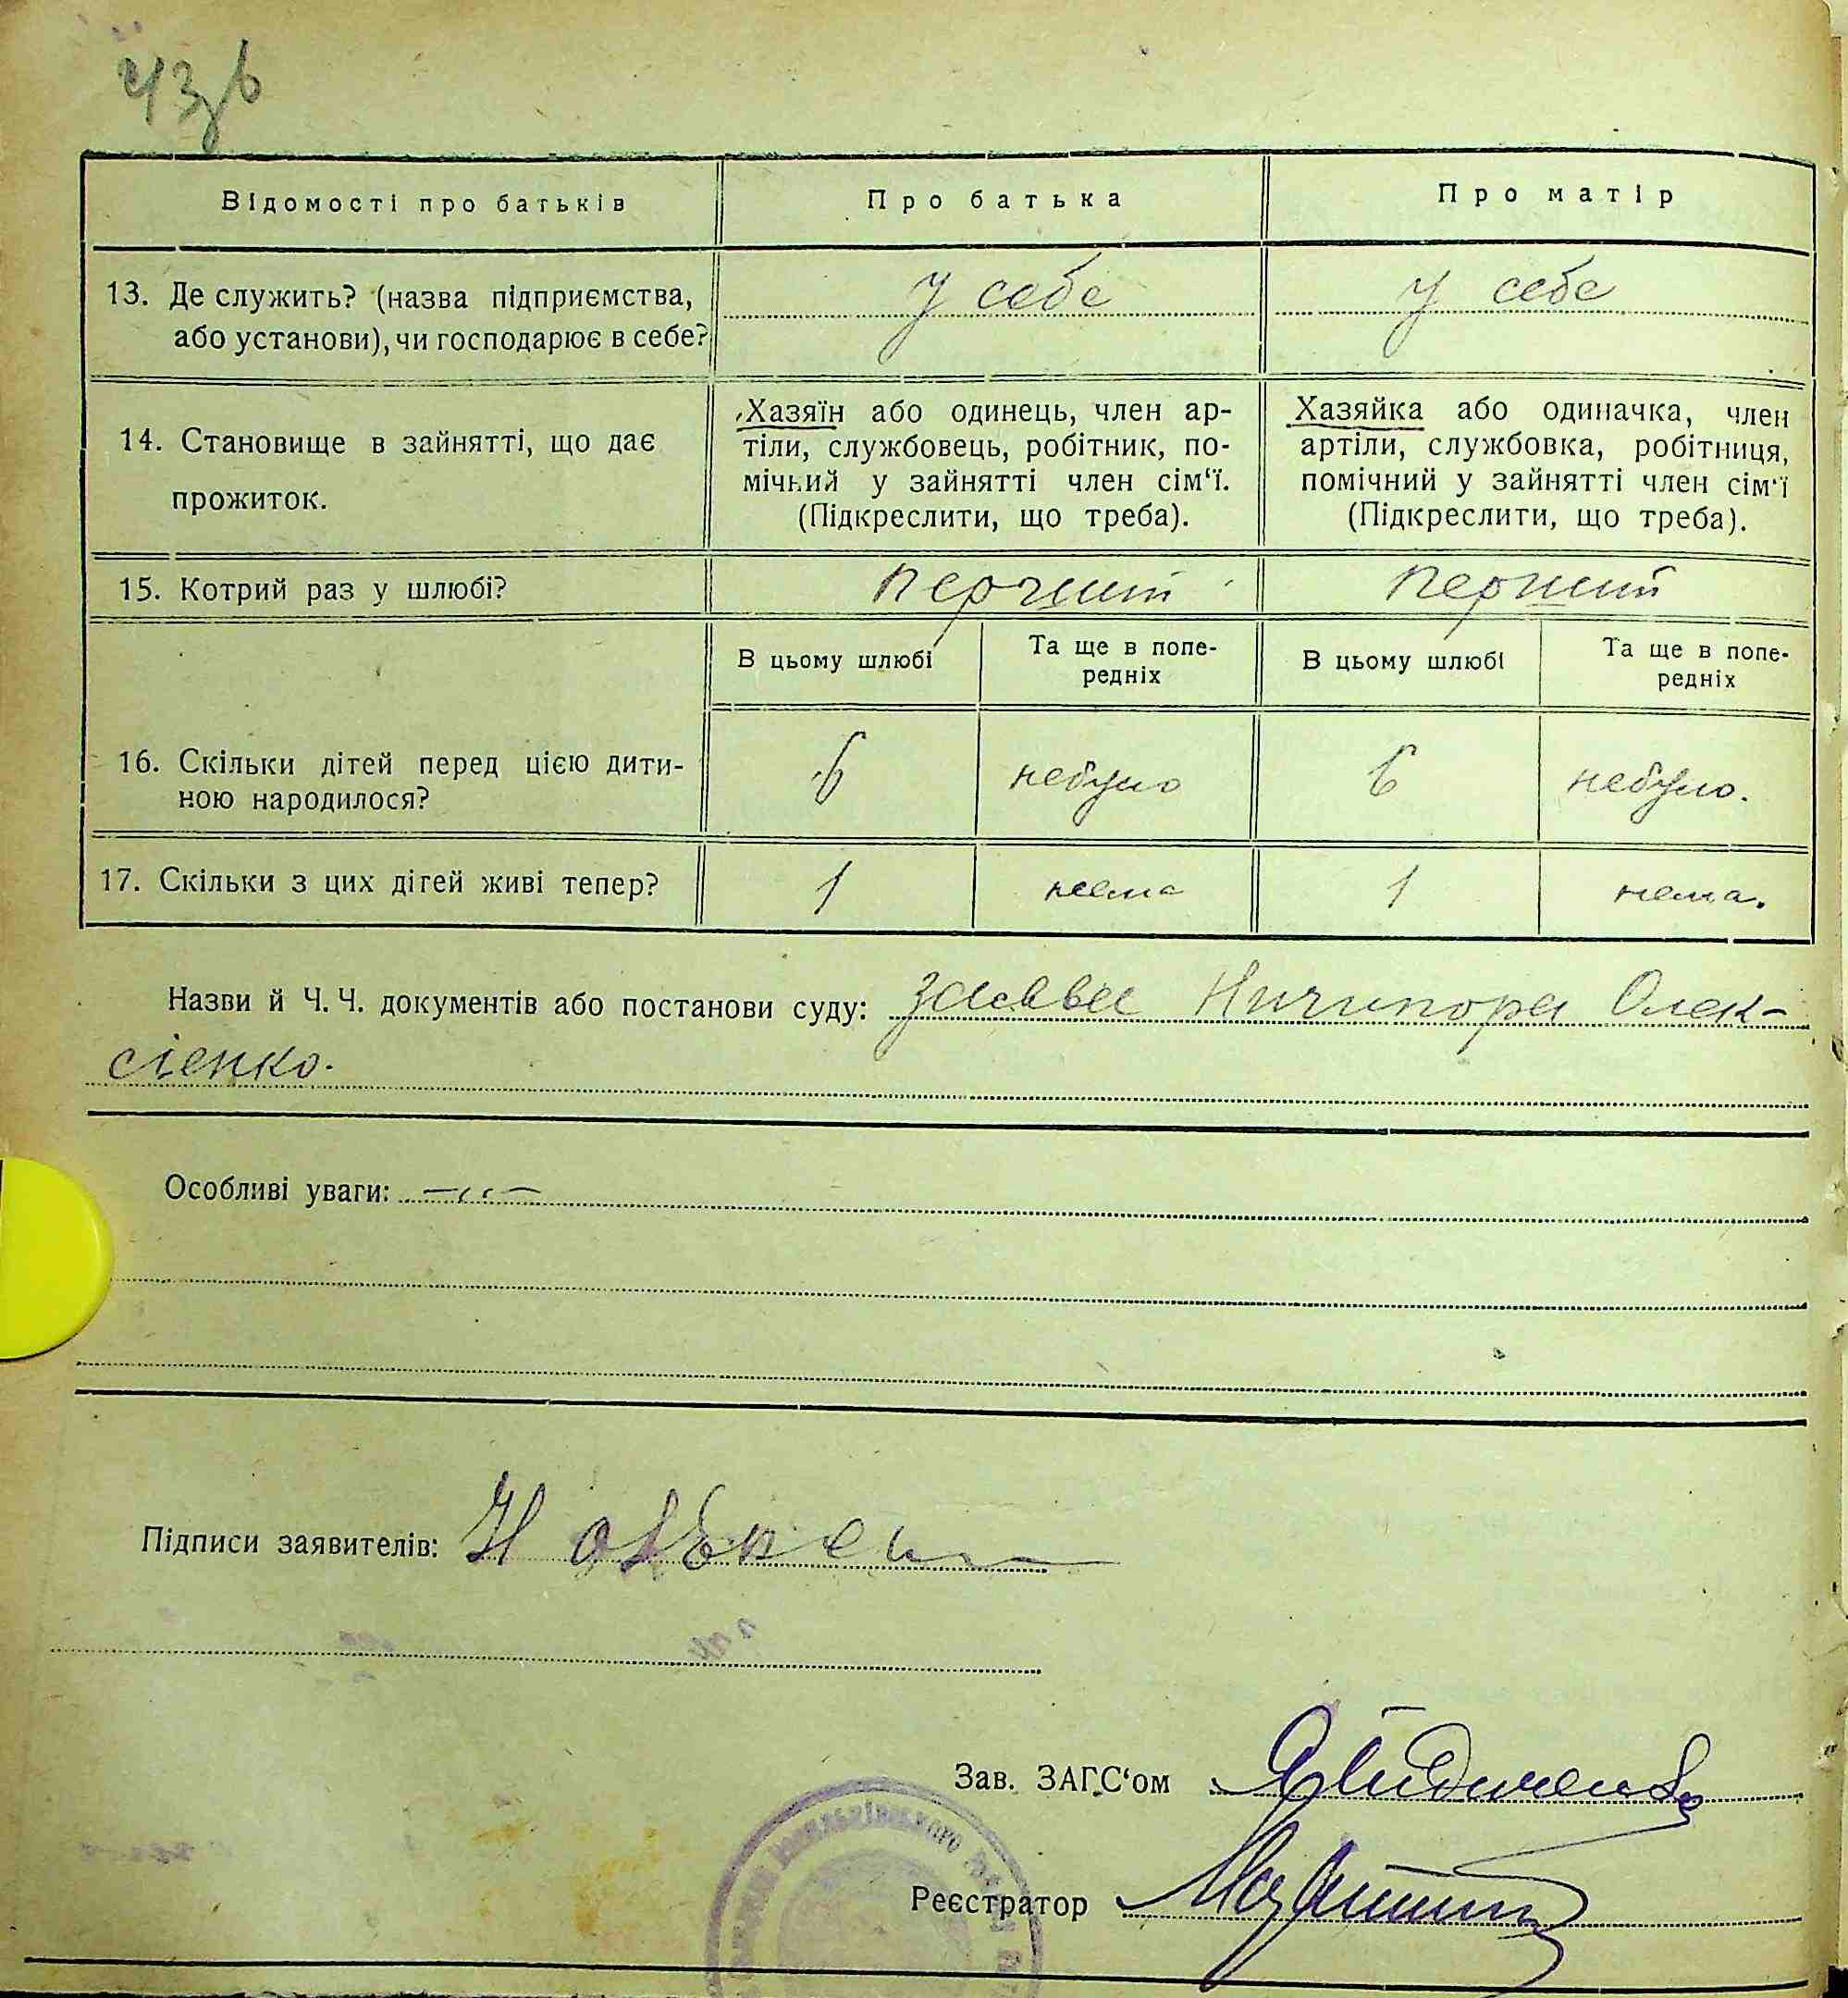 43в
Відомості про батьків
Про батька
Про матір
13. Де служить? (назва підприємства,
або установи), чи господарює в себе?
у себе
у себе
14. Становище в зайнятті, що дає
прожиток.
Хазяїн або одинець, член ар-
тіли, службовець, робітник, по-
мічний у зайнятті член сім‘ї.
(Підкреслити, що треба).
Хазяйка або одиначка, член
артіли, службовка, робітниця,
помічний у зайнятті член сім‘ї
(Підкреслити, що треба).
15. Котрий раз у шлюбі?
перший
перший
В цьому шлюбі
Та ще в попе-
редніх
В цьому шлюбі
Та ще в попе-
редніх
16. Скільки дітей перед цією дити-
ною народилося?
6
небуло
6
небуло.
17. Скільки з цих дітей живі тепер?
1
нема
1
нема.
Назви й Ч. Ч. документів або постанови суду: заява Ничипора Олек-
сієнко.
Особливі уваги:
Підписи заявителів:
Зав. ЗАГС‘ом
Реєстратор